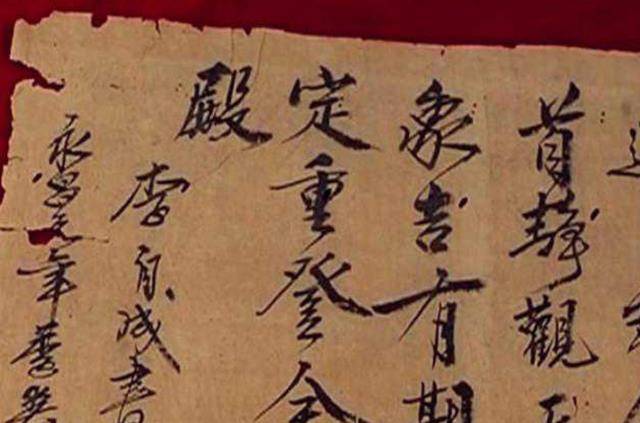 首静觀天
象吉有期
定重登金
殿
李自成書
永昌元年